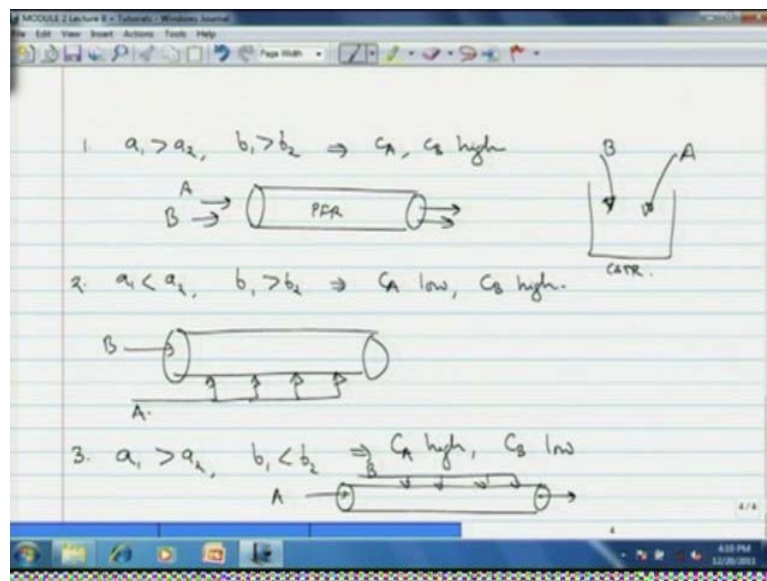 MODULE 2 Lecture 8 + Tutorials - Windows Journal
File Edit View Insert Actions Tools Help
Page Width
1. a₁ > a₂, b₁ > b₂ ⇒ C_A, C_B high
A
B
PFR
B A
CSTR.
2. a₁ < a₂, b₁ > b₂ ⇒ C_A low, C_B high.
B
A.
3. a₁ > a₂, b₁ < b₂ ⇒ C_A high, C_B low
B
A
4/4
4
4:03 PM
12/20/2011